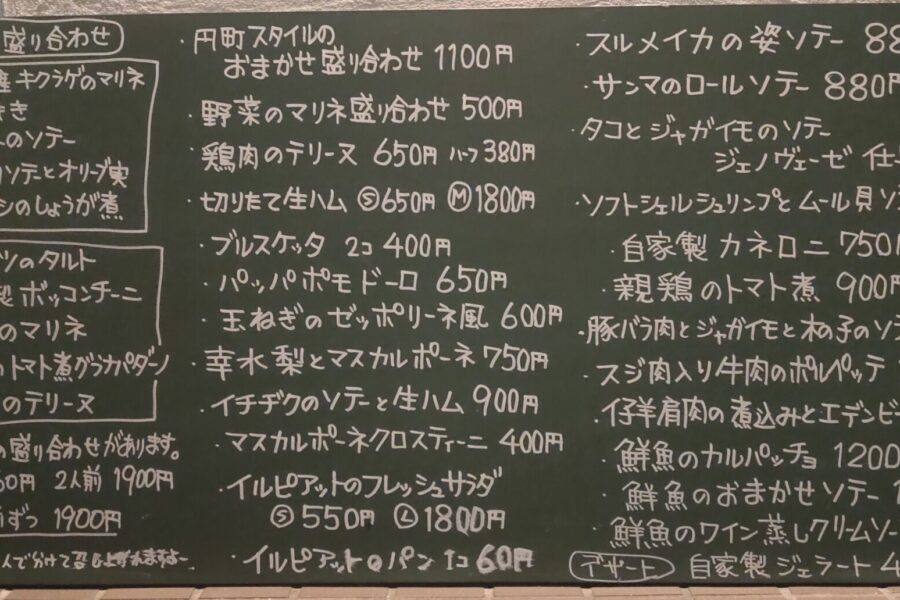 盛り合わせ
産キクラゲのマリネ
き
のソテー
ソテーとオリーブ実
シのしょうが煮
ツのタルト
製 ボッコンチーニ
のマリネ
トマト煮グラナパダーノ
のテリーヌ
の盛り合わせがあります。
50円 2人前 1900円
ずつ 1900円
・円町スタイルの
おまかせ盛り合わせ 1100円
・野菜のマリネ盛り合わせ 500円
・鶏肉のテリーヌ 650円 ハーフ 380円
・切りたて生ハム Ⓢ650円 Ⓜ1800円
・ブルスケッタ 2コ 400円
・パッパポモドーロ 650円
・玉ねぎのゼッポリーネ風 600円
・幸水梨とマスカルポーネ 750円
・イチヂクのソテーと生ハム 900円
・マスカルポーネクロスティーニ 400円
・イルピアットのフレッシュサラダ
Ⓢ 550円 Ⓛ 1800円
・イルピアットのパン 1コ 60円
・スルメイカの姿ソテー 88
・サンマのロールソテー 880円
・タコとジャガイモのソテー
ジェノヴェーゼ 仕
・ソフトシェルシュリンプとムール貝ソ
・自家製カネロニ 750円
・親鶏のトマト煮 900円
・豚バラ肉とジャガイモと木の子のソ
・スジ肉入り牛肉のポルペッテ
・仔羊肩肉の煮込みとエデンピ
・鮮魚のカルパッチョ 1200
・鮮魚のおまかせソテー 1
・鮮魚のワイン蒸しクリームソー
デザート 自家製ジェラート 4